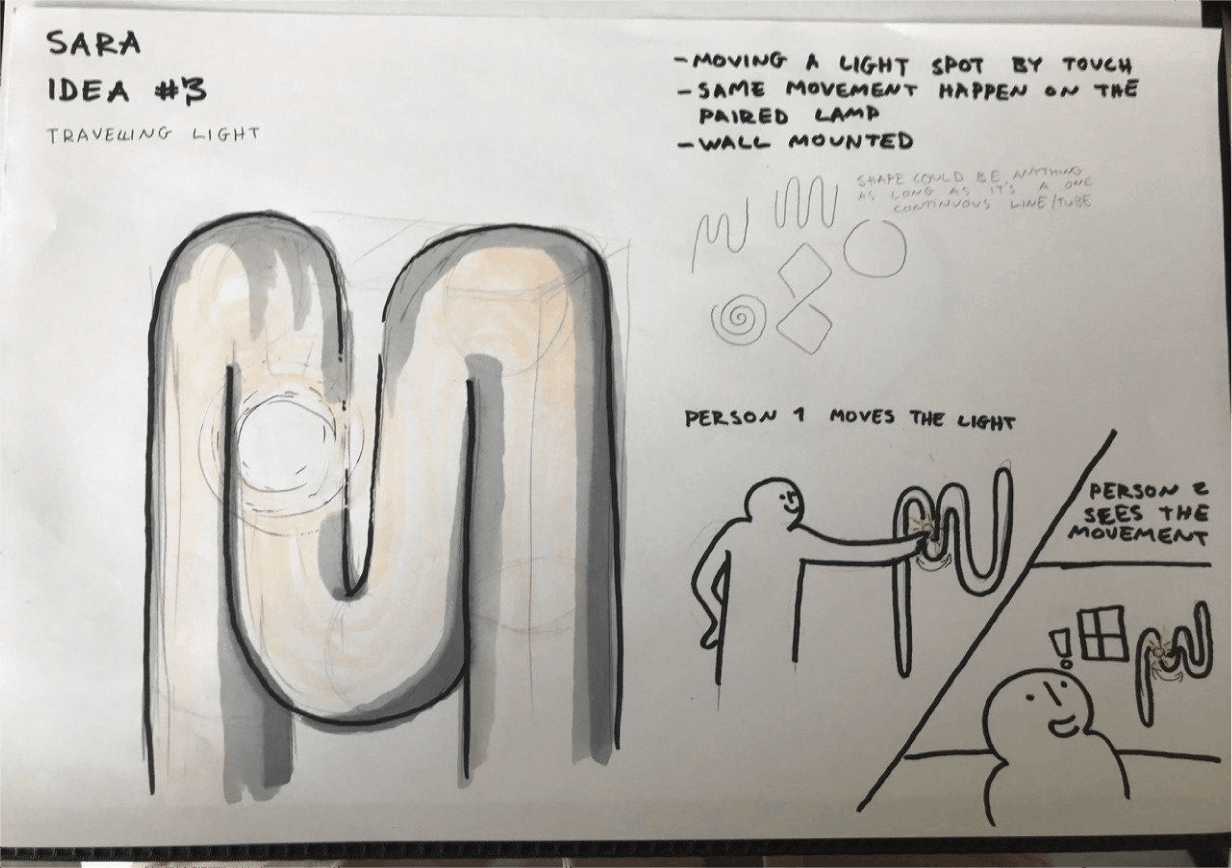 SARA
IDEA #3
TRAVELLING LIGHT
- MOVING A LIGHT SPOT BY TOUCH
- SAME MOVEMENT HAPPEN ON THE
PAIRED LAMP
- WALL MOUNTED
SHAPE COULD BE ANYTHING
AS LONG AS IT'S A ONE
CONTINUOUS LINE/TUBE
PERSON 1 MOVES THE LIGHT
PERSON 2
SEES THE
MOVEMENT
!